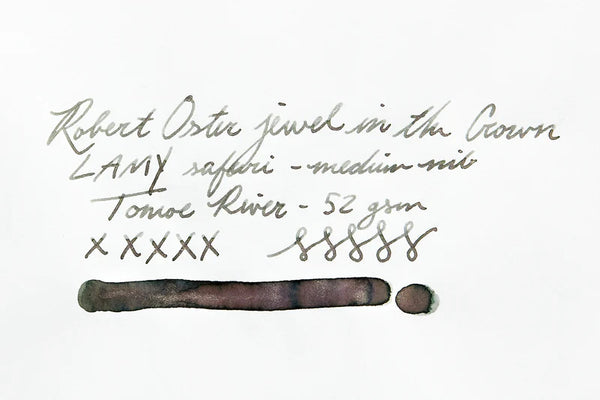 Robert Oster jewel in the Crown
LAMY safari - medium nib
Tomoe River - 52 gsm
x x x x x